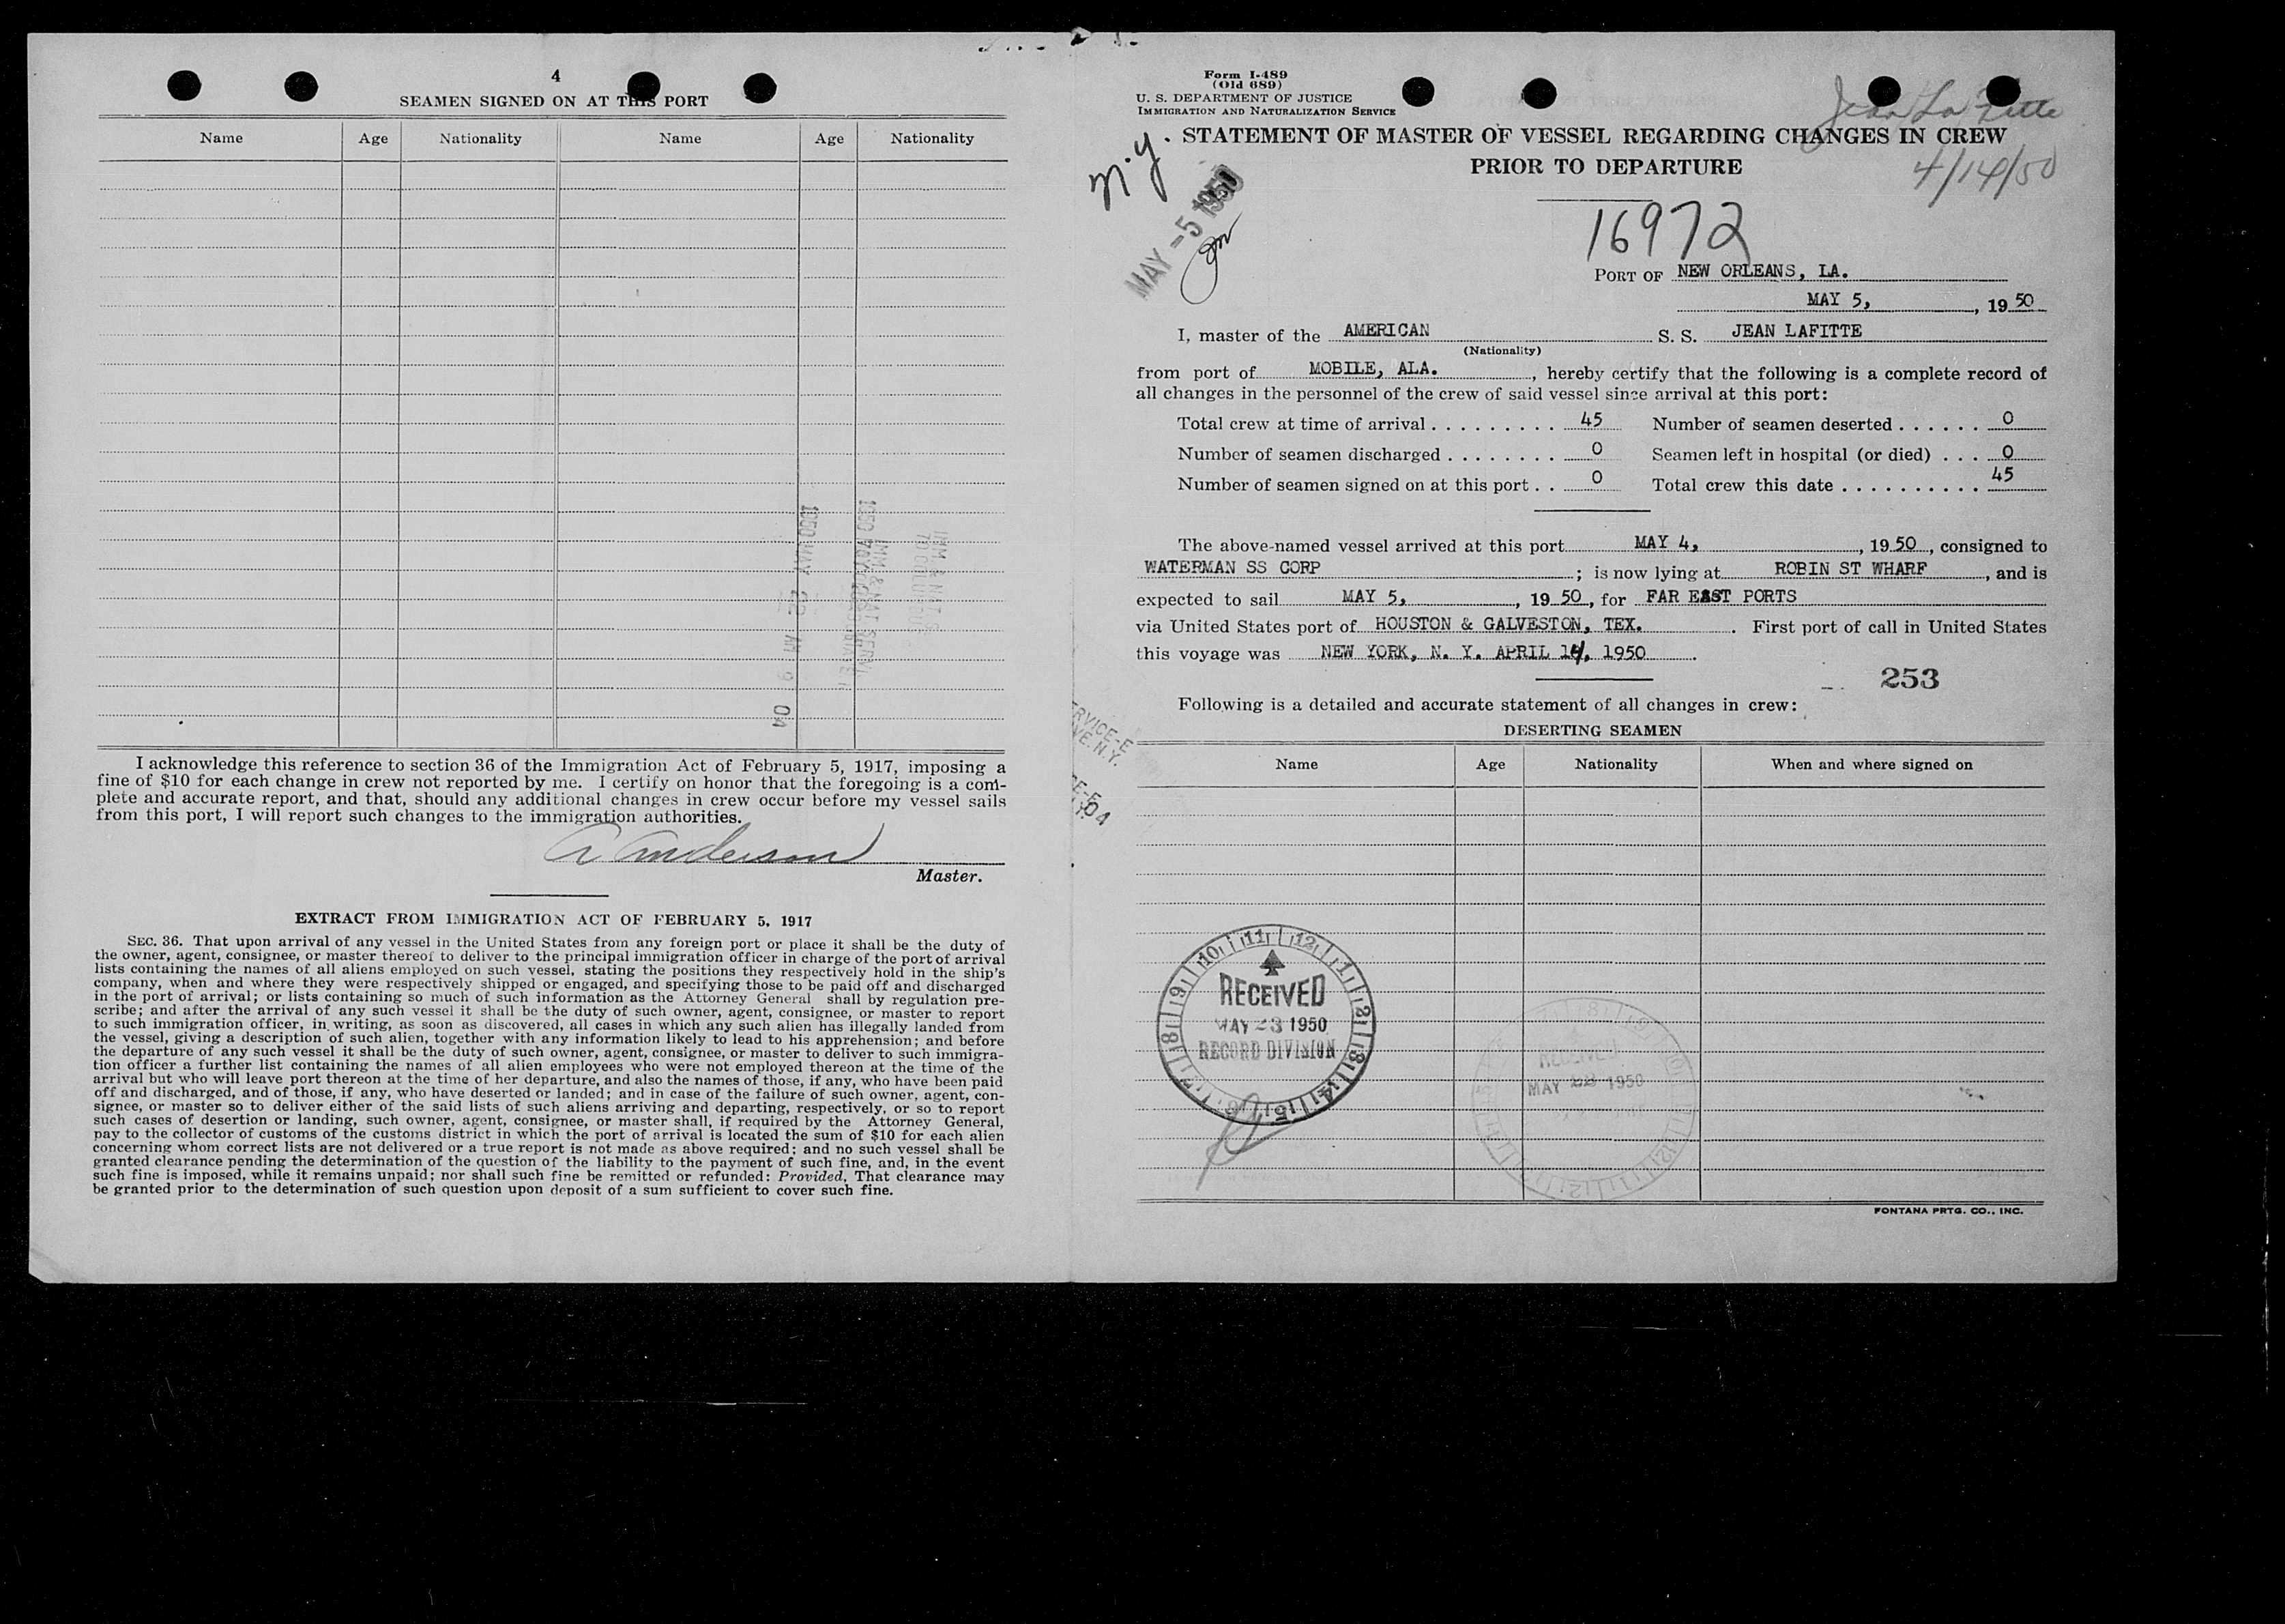 4
SEAMEN SIGNED ON AT THIS PORT
Name Age Nationality Name Age Nationality
I acknowledge this reference to section 36 of the Immigration Act of February 5, 1917, imposing a
fine of $10 for each change in crew not reported by me. I certify on honor that the foregoing is a com-
plete and accurate report, and that, should any additional changes in crew occur before my vessel sails
from this port, I will report such changes to the immigration authorities.
A Anderson
Master.
EXTRACT FROM IMMIGRATION ACT OF FEBRUARY 5, 1917
SEC. 36. That upon arrival of any vessel in the United States from any foreign port or place it shall be the duty of
the owner, agent, consignee, or master thereof to deliver to the principal immigration officer in charge of the port of arrival
lists containing the names of all aliens employed on such vessel, stating the positions they respectively hold in the ship's
company, when and where they were respectively shipped or engaged, and specifying those to be paid off and discharged
in the port of arrival; or lists containing so much of such information as the Attorney General shall by regulation pre-
scribe; and after the arrival of any such vessel it shall be the duty of such owner, agent, consignee, or master to report
to such immigration officer, in writing, as soon as discovered, all cases in which any such alien has illegally landed from
the vessel, giving a description of such alien, together with any information likely to lead to his apprehension; and before
the departure of any such vessel it shall be the duty of such owner, agent, consignee, or master to deliver to such immigra-
tion officer a further list containing the names of all alien employees who were not employed thereon at the time of the
arrival but who will leave port thereon at the time of her departure, and also the names of those, if any, who have been paid
off and discharged, and of those, if any, who have deserted or landed; and in case of the failure of such owner, agent, con-
signee, or master so to deliver either of the said lists of such aliens arriving and departing, respectively, or so to report
such cases of desertion or landing, such owner, agent, consignee, or master shall, if required by the Attorney General,
pay to the collector of customs of the customs district in which the port of arrival is located the sum of $10 for each alien
concerning whom correct lists are not delivered or a true report is not made as above required; and no such vessel shall be
granted clearance pending the determination of the question of the liability to the payment of such fine, and, in the event
such fine is imposed, while it remains unpaid; nor shall such fine be remitted or refunded: Provided, That clearance may
be granted prior to the determination of such question upon deposit of a sum sufficient to cover such fine.
Form I-489
(Old 689)
U. S. DEPARTMENT OF JUSTICE
IMMIGRATION AND NATURALIZATION SERVICE
Jean La Fitte
4/14/50
N.Y.
MAY -5 1950
STATEMENT OF MASTER OF VESSEL REGARDING CHANGES IN CREW
PRIOR TO DEPARTURE
16972
PORT OF NEW ORLEANS, LA.
MAY 5, , 19 50
I, master of the AMERICAN S. S. JEAN LAFITTE
(Nationality)
from port of MOBILE, ALA. , hereby certify that the following is a complete record of
all changes in the personnel of the crew of said vessel since arrival at this port:
Total crew at time of arrival . . . . . . . . . 45 Number of seamen deserted . . . . . . 0
Number of seamen discharged . . . . . . . . 0 Seamen left in hospital (or died) . . . 0
Number of seamen signed on at this port . . 0 Total crew this date . . . . . . . . . . 45
The above-named vessel arrived at this port MAY 4, , 19 50 , consigned to
WATERMAN SS CORP ; is now lying at ROBIN ST WHARF , and is
expected to sail MAY 5, , 19 50 , for FAR EAST PORTS
via United States port of HOUSTON & GALVESTON, TEX. . First port of call in United States
this voyage was NEW YORK, N. Y. APRIL 14, 1950 .
253
Following is a detailed and accurate statement of all changes in crew:
DESERTING SEAMEN
Name Age Nationality When and where signed on
RECEIVED
MAY 23 1950
RECORD DIVISION
RECEIVED
MAY 1950
FONTANA PRTG. CO., INC.